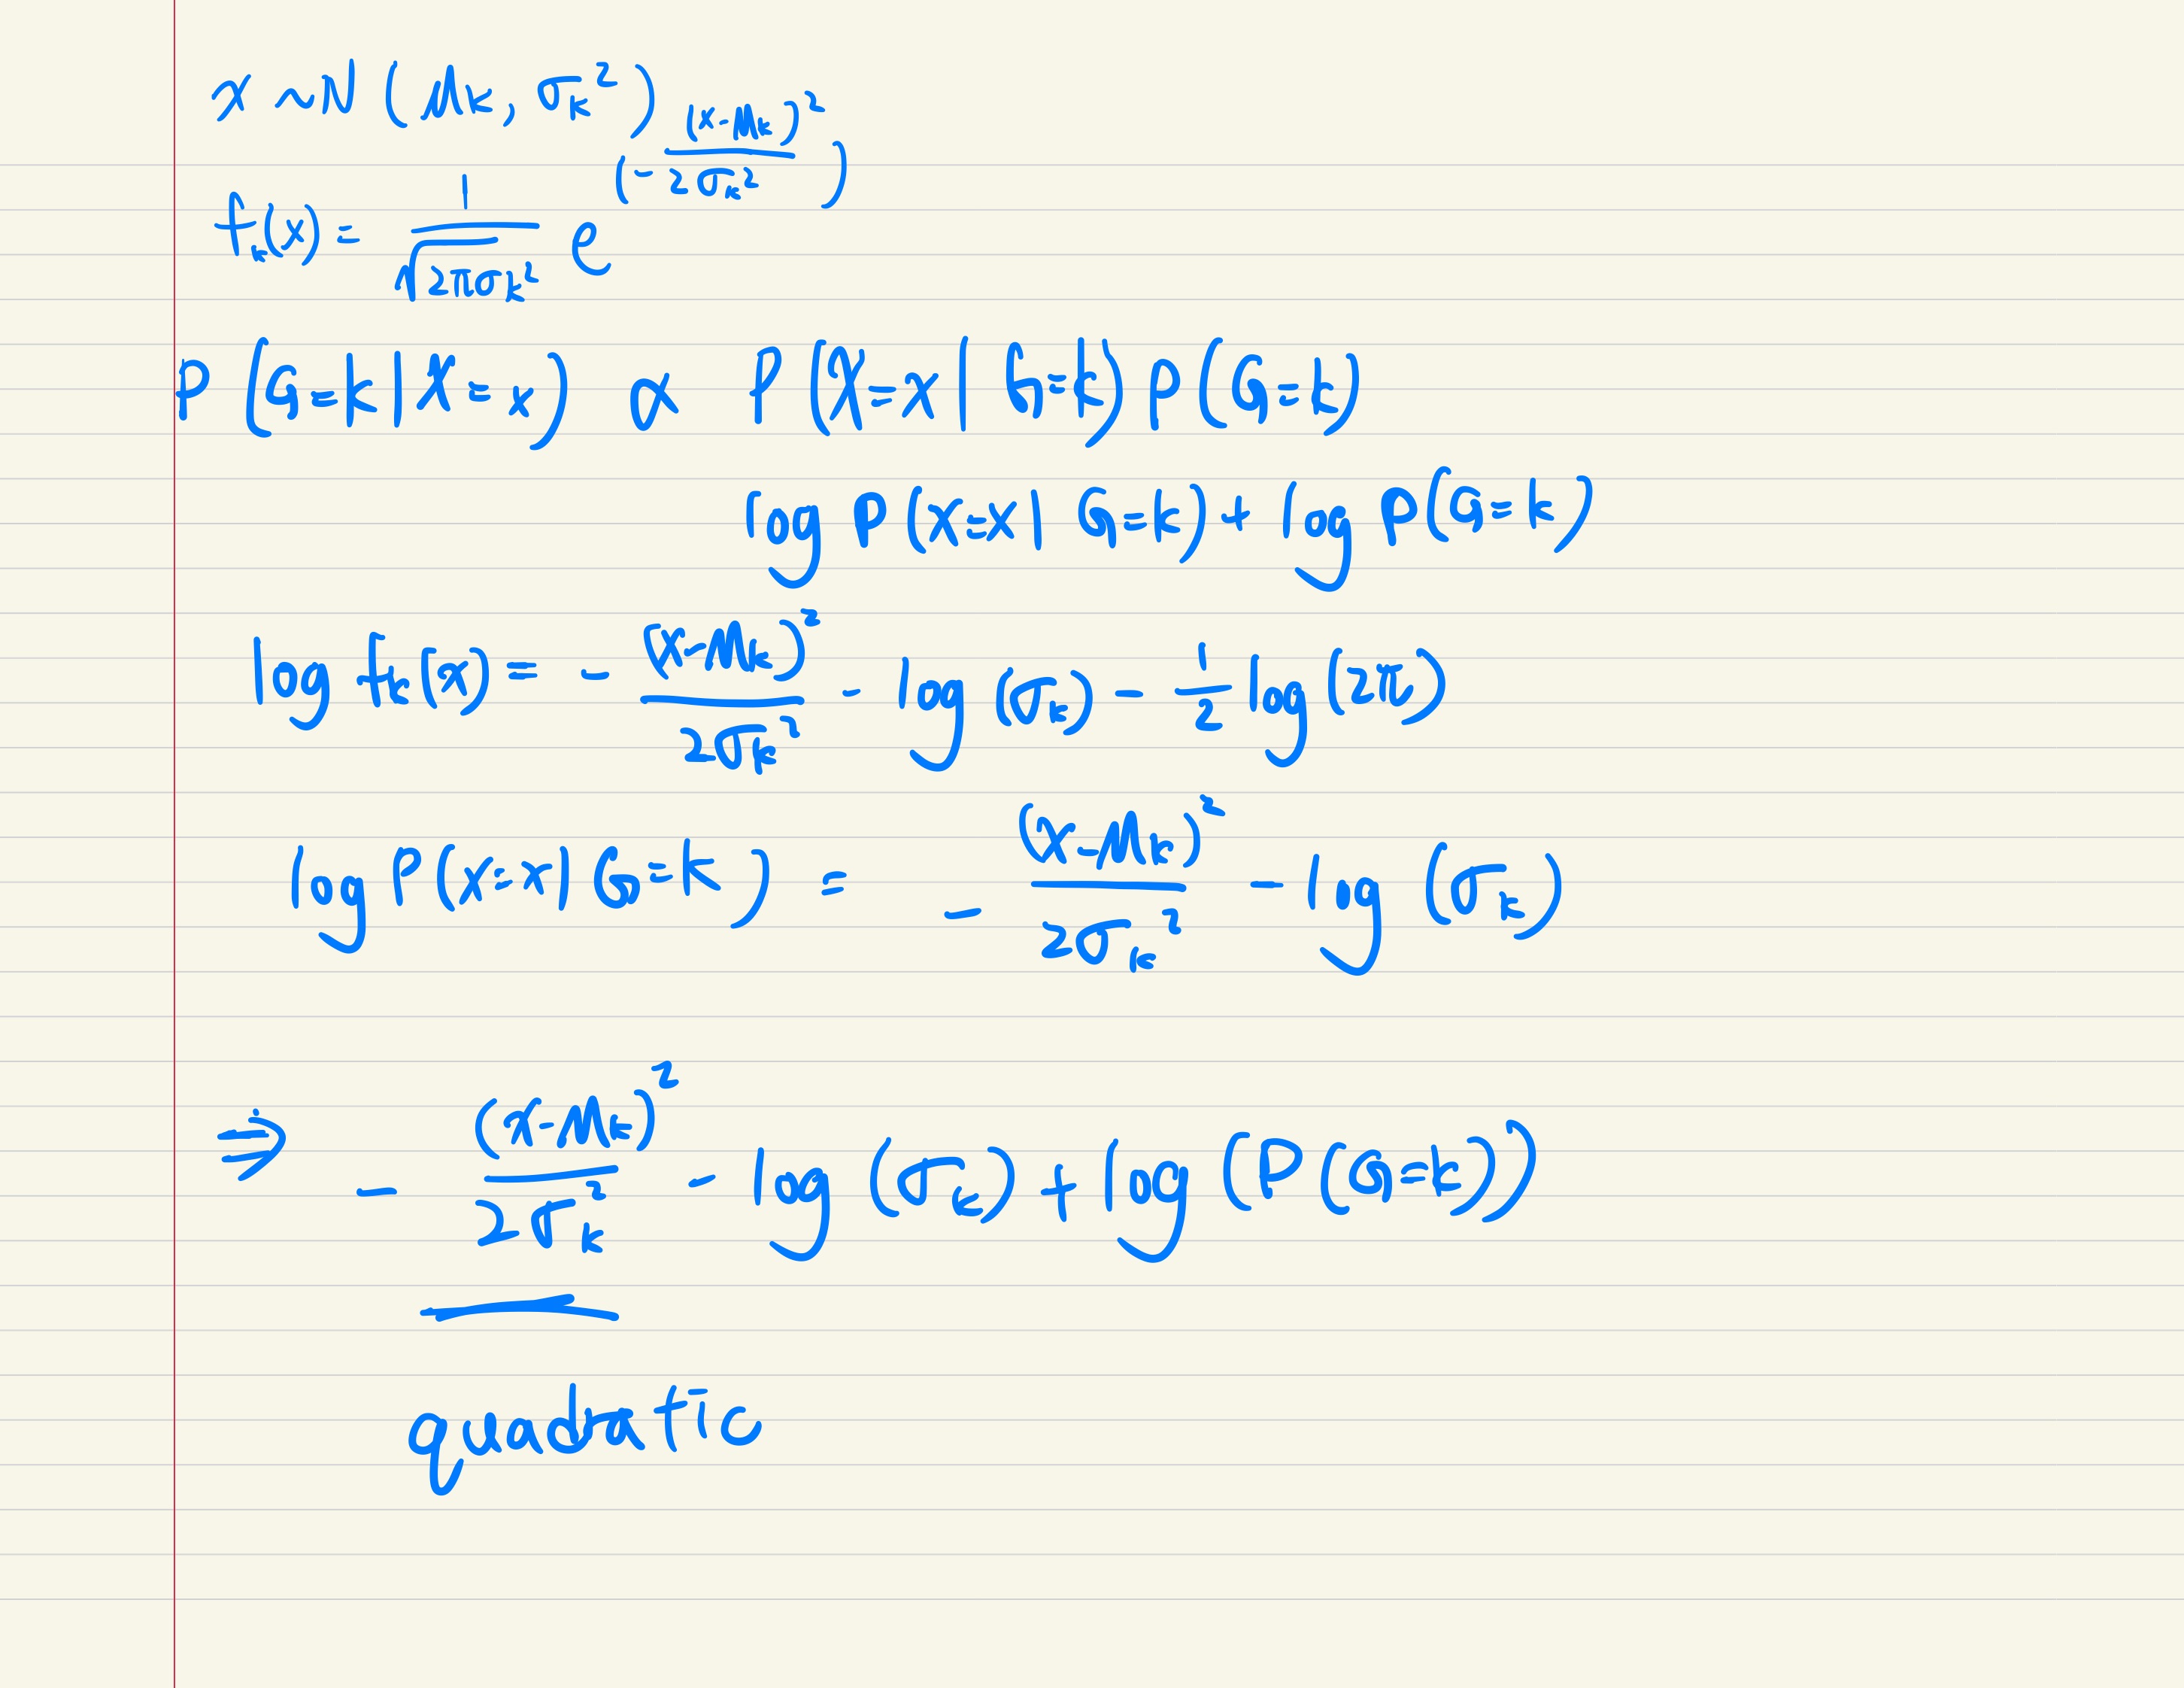 X ~ N (μₖ, σₖ²)
fₖ(x) = 1/√(2πσₖ²) e^(-(x-μₖ)²/(2σₖ²))
P(G=k|X=x) ∝ P(X=x|G=k) P(G=k)
log P(X=x|G=k) + log P(G=k)
log fₖ(x) = - (x-μₖ)²/(2σₖ²) - log (σₖ) - 1/2 log(2π)
log P(X=x|G=k) = - (x-μₖ)²/(2σₖ²) - log (σₖ)
⇒ - (x-μₖ)²/(2σₖ²) - log (σₖ) + log (P(G=k))
quadratic